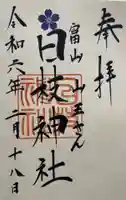 奉拝
富山 山王さん
日枝神社
令和六年二月十八日